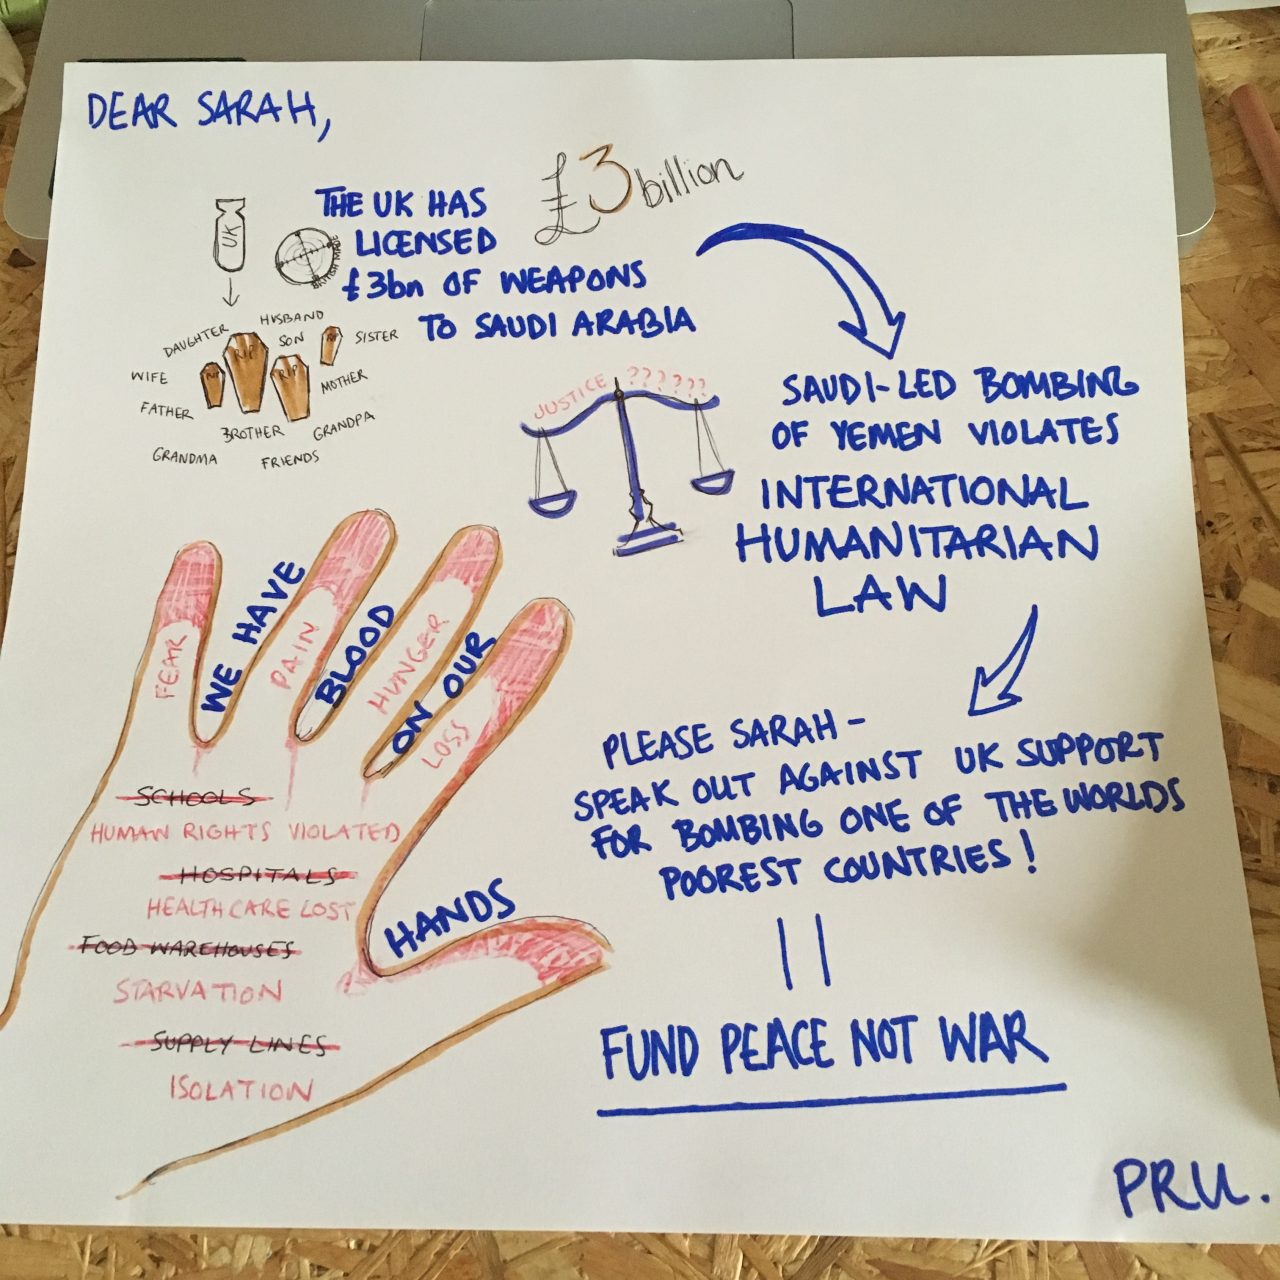 DEAR SARAH,
£3 billion
THE UK HAS
LICENSED
£3bn OF WEAPONS
TO SAUDI ARABIA
UK
BRITISH MADE
DAUGHTER
HUSBAND
SON
SISTER
WIFE
MOTHER
FATHER
BROTHER
GRANDPA
GRANDMA
FRIENDS
RIP
RIP
RIP
RIP
JUSTICE ??????
SAUDI-LED BOMBING
OF YEMEN VIOLATES
INTERNATIONAL
HUMANITARIAN
LAW
WE HAVE
BLOOD
ON OUR
HANDS
FEAR
PAIN
HUNGER
LOSS
SCHOOLS
HUMAN RIGHTS VIOLATED
HOSPITALS
HEALTHCARE LOST
FOOD WAREHOUSES
STARVATION
SUPPLY LINES
ISOLATION
PLEASE SARAH -
SPEAK OUT AGAINST UK SUPPORT
FOR BOMBING ONE OF THE WORLDS
POOREST COUNTRIES!
FUND PEACE NOT WAR
PRU.